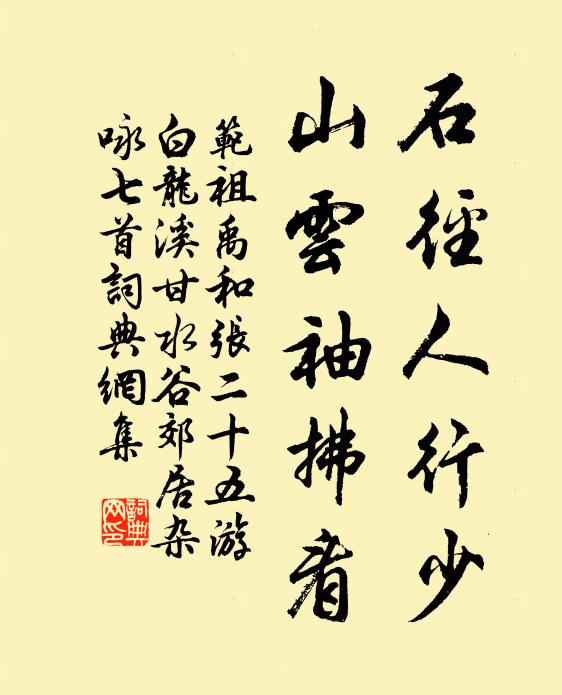 石徑人行少
山雲袖拂看
範祖禹和張二十五游
白龍溪甘水谷郊居杂
咏七首詞典網集
詞典网印